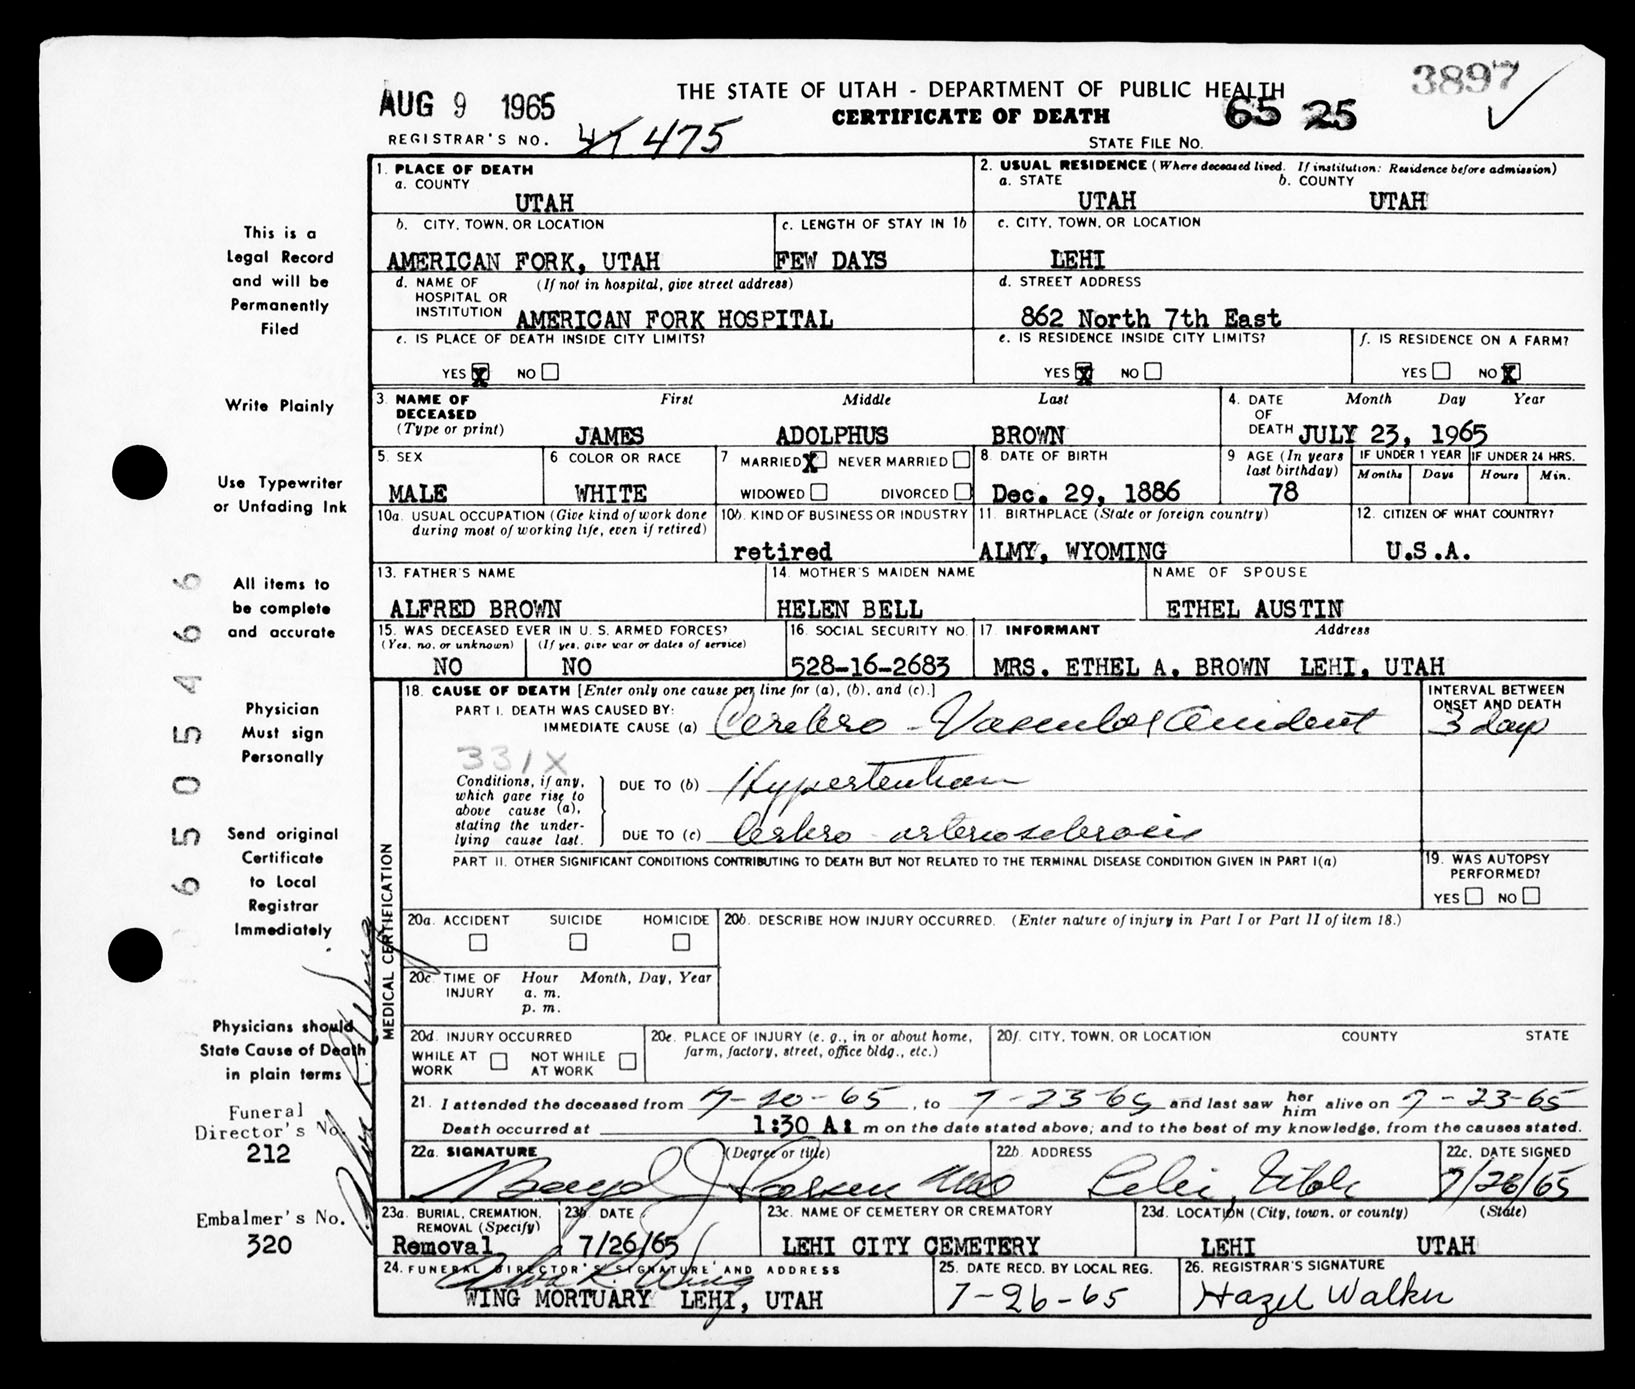 AUG 9 1965
THE STATE OF UTAH - DEPARTMENT OF PUBLIC HEALTH
3897
CERTIFICATE OF DEATH
65 25
REGISTRAR'S NO. 475
STATE FILE NO.
1. PLACE OF DEATH
a. COUNTY
UTAH
2. USUAL RESIDENCE (Where deceased lived. If institution: Residence before admission)
a. STATE b. COUNTY
UTAH UTAH
b. CITY, TOWN, OR LOCATION
AMERICAN FORK, UTAH
c. LENGTH OF STAY IN 1b
FEW DAYS
c. CITY, TOWN, OR LOCATION
LEHI
d. NAME OF HOSPITAL OR INSTITUTION (If not in hospital, give street address)
AMERICAN FORK HOSPITAL
d. STREET ADDRESS
862 North 7th East
e. IS PLACE OF DEATH INSIDE CITY LIMITS?
YES X NO
e. IS RESIDENCE INSIDE CITY LIMITS?
YES X NO
f. IS RESIDENCE ON A FARM?
YES NO X
3. NAME OF DECEASED (Type or print)
First Middle Last
JAMES ADOLPHUS BROWN
4. DATE OF DEATH Month Day Year
JULY 23, 1965
5. SEX
MALE
6 COLOR OR RACE
WHITE
7 MARRIED X NEVER MARRIED
WIDOWED DIVORCED
8. DATE OF BIRTH
Dec. 29, 1886
9 AGE (In years last birthday)
78
IF UNDER 1 YEAR
Months Days
IF UNDER 24 HRS.
Hours Min.
10a. USUAL OCCUPATION (Give kind of work done during most of working life, even if retired)
10b. KIND OF BUSINESS OR INDUSTRY
retired
11. BIRTHPLACE (State or foreign country)
ALMY, WYOMING
12. CITIZEN OF WHAT COUNTRY?
U.S.A.
13. FATHER'S NAME
ALFRED BROWN
14. MOTHER'S MAIDEN NAME
HELEN BELL
NAME OF SPOUSE
ETHEL AUSTIN
15. WAS DECEASED EVER IN U. S. ARMED FORCES?
(Yes, no, or unknown) (If yes, give war or dates of service)
NO NO
16. SOCIAL SECURITY NO.
528-16-2683
17. INFORMANT Address
MRS. ETHEL A. BROWN LEHI, UTAH
MEDICAL CERTIFICATION
18. CAUSE OF DEATH [Enter only one cause per line for (a), (b), and (c).]
PART I. DEATH WAS CAUSED BY:
IMMEDIATE CAUSE (a) Cerebro - Vascular Accident
INTERVAL BETWEEN ONSET AND DEATH
3 days
331X
Conditions, if any, which gave rise to above cause (a), stating the underlying cause last.
DUE TO (b) Hypertension
DUE TO (c) Cerebro arteriosclerosis
PART II. OTHER SIGNIFICANT CONDITIONS CONTRIBUTING TO DEATH BUT NOT RELATED TO THE TERMINAL DISEASE CONDITION GIVEN IN PART I(a)
19. WAS AUTOPSY PERFORMED?
YES NO
20a. ACCIDENT SUICIDE HOMICIDE
20b. DESCRIBE HOW INJURY OCCURRED. (Enter nature of injury in Part I or Part II of item 18.)
20c. TIME OF INJURY Hour Month, Day, Year
a. m.
p. m.
20d. INJURY OCCURRED
WHILE AT WORK NOT WHILE AT WORK
20e. PLACE OF INJURY (e. g., in or about home, farm, factory, street, office bldg., etc.)
20f. CITY, TOWN, OR LOCATION COUNTY STATE
21. I attended the deceased from 7-20-65, to 7-23-65 and last saw her him alive on 7-23-65
Death occurred at 1:30 A: m on the date stated above; and to the best of my knowledge, from the causes stated.
22a. SIGNATURE (Degree or title)
Boyd J Larsen MD
22b. ADDRESS
Lehi, Utah
22c. DATE SIGNED
7/26/65
23a. BURIAL, CREMATION, REMOVAL (Specify)
Removal
23b. DATE
7/26/65
23c. NAME OF CEMETERY OR CREMATORY
LEHI CITY CEMETERY
23d. LOCATION (City, town, or county) (State)
LEHI UTAH
24. FUNERAL DIRECTOR'S SIGNATURE AND ADDRESS
Alva R. Wing
WING MORTUARY LEHI, UTAH
25. DATE RECD. BY LOCAL REG.
7-26-65
26. REGISTRAR'S SIGNATURE
Hazel Walker
This is a
Legal Record
and will be
Permanently
Filed
Write Plainly
Use Typewriter
or Unfading Ink
All items to
be complete
and accurate
Physician
Must sign
Personally
Send original
Certificate
to Local
Registrar
Immediately
Physicians should
State Cause of Death
in plain terms
Funeral
Director's No.
212
Embalmer's No.
320
Alva R. Wing
65 05466